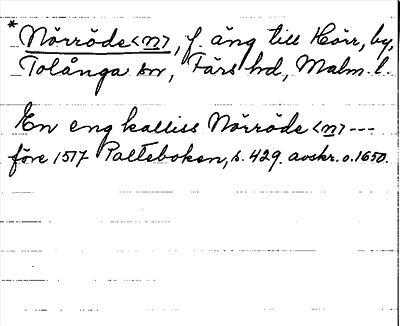 * Nörröde<n>, f. äng till Hörr, by,
Tolånga sn, Färs hd, Malm. l.
En eng kalliss Nörröde<n> ---
före 1517 Palteboken, s. 429. avskr. o. 1650.